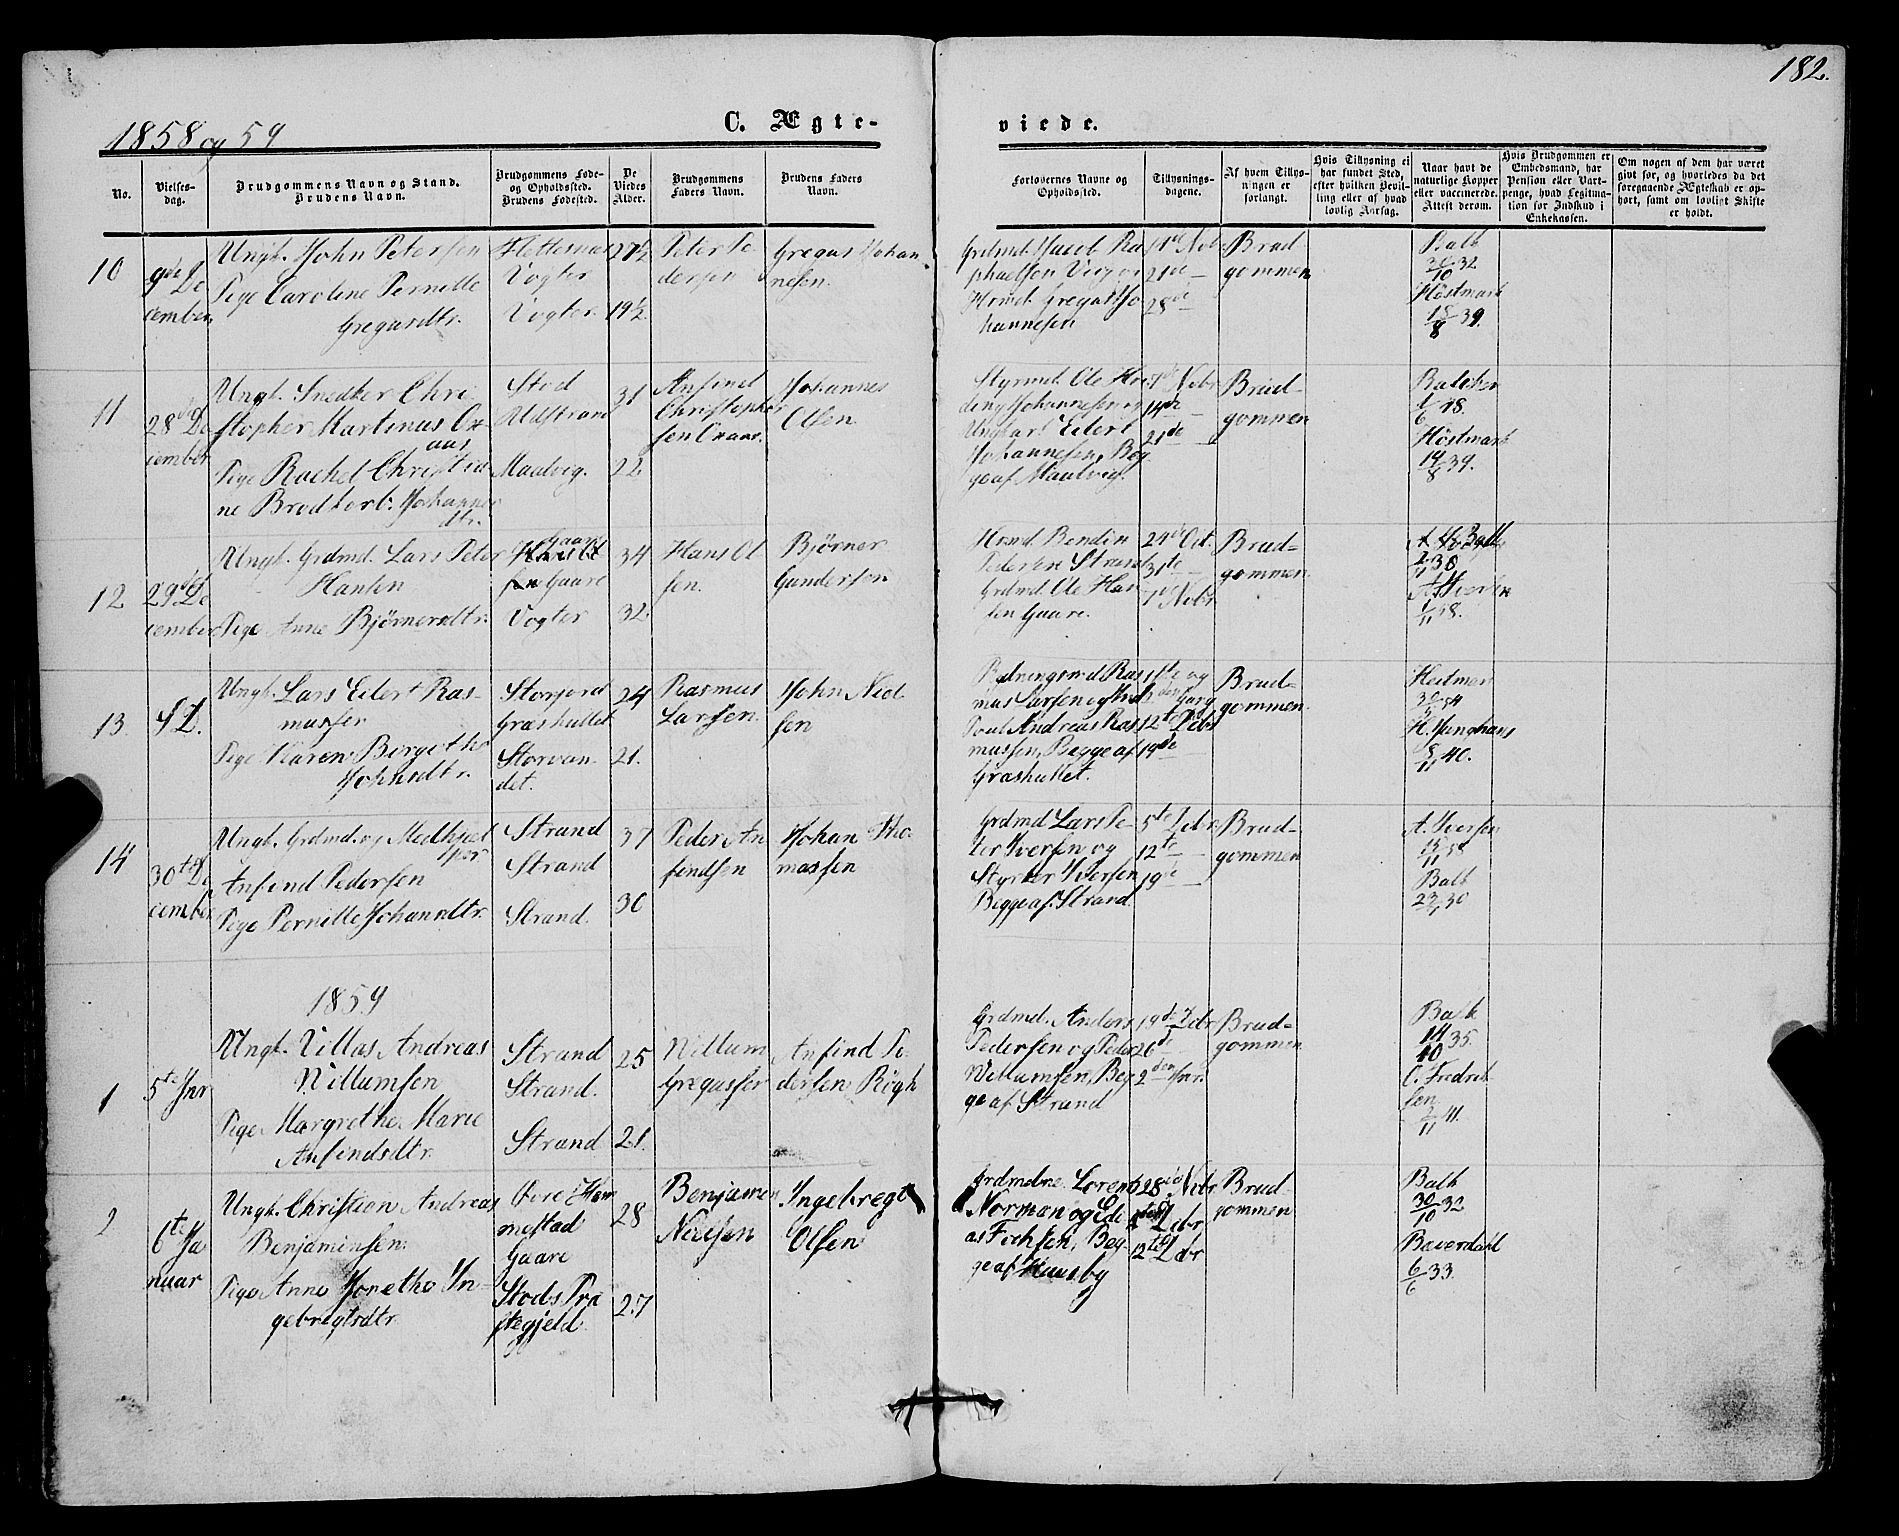 182.
1858 og 59
C. Ægte-
viede.
No.
Vielses-
dag.
Brudgommens Navn og Stand.
Brudens Navn.
Brudgommens Føde-
og Opholdssted.
Brudens Fødested.
De
Viedes
Alder.
Brudgommens
Faders Navn.
Brudens Faders
Navn.
Forlovernes Navne og
Opholdssted.
Tillysnings-
dagene.
Af hvem Tillys-
ningen er
forlangt.
Hvis Tillysning ei
har fundet Sted,
efter hvilken Bevil-
ling eller af hvad
lovlig Aarsag.
Naar havt de
naturlige Kopper
eller vaccinerede.
Attest derom.
Hvis Brudgommen er
Embedsmand, har
Pension eller Vart-
penge, hvad Legitima-
tion for Indskud i
Enkekassen.
Om nogen af dem har været
givt før, og hvorledes da det
foregaaende Ægteskab er op-
hørt, samt om lovligt Skifte
er holdt.
10
9de De
cember
Ungk. John Petersen
Pige Caroline Pernille
Gregusdtr.
Vogter
Vogter
27½
19½
Peter Pe
dersen
Gregus Johan-
nesen.
Grdmd. Jacob Ra
phaelsen Vog og
Hrmd. Gregus Jo
hannesen
14de Nobr
21de —
28de —
Brud
gommen
Balb
30/10 32
Høstmark
15/8 39.
11
28de De
cember
Ungk. Snedker Chri
stopher Martinus Ox
aas
Pige Rachel Christia
ne Brodtkorb. Johannes
dtr.
Stod
Ulstrand
Maalvig.
31
22
Anfind
Christopher
sen Oxaas.
Johannes
Olsen
Styrmd. Ole Hri
ding Johannesen og
Ungkarl Edert
Johannesen, Beg
ge af Maalvig.
7de Nobr
14de —
21de —
Brud-
gommen
1/6 28.
Høstmark
14/8 39.
12
29de De
cember
Ungk. Grdmd. Lars Peter
Hansen
Pige Anne Bjørnersdtr.
Gaare
Vogter
34
32
Hans Ol
sen.
Bjørner
Gundersen
Hrmd. Bendix
Pedersen Strand
Grdmd. Ole Han
sen Gaare.
24de Oct.
31te —
7de Nobr
Brud-
gommen
2/11 30
A. Iversen
1/11 58.
13.
s. D.
Ungk. Lars Edert Ras-
mussen
Pige Karen Bergethe
Johnsdtr.
Storjord
Græshullet
Storvan
det.
24
21.
Rasmus
Larsen.
John Niel
sen
Rydningsmd. Ras
mus Larsen og Ind
Poul Andreas Ras
mussen, Begge af
Græshullet.
1ste og
Gang
12te Debr
19de
Brud-
gommen
Heitman
H. Junghans
8/11 40.
14
30te De
cember
Ungk. Grdmd. og Medhjæl
per
Anfind Pedersen
Pige Pernille Johansdtr.
Strand
Strand
Strand.
37
30
Peder An
findsen
Johan Tho-
massen
Grdmd Lars Pe-
ter Iversen og
Styrker Iversen
Begge af Strand.
5te Debr
12te —
19de —
Brud-
gommen
A. Iversen
15/11 58
Balb
1859
1
5te Jnr
Ungk. Villas Andreas
Villumsen
Pige Margrethe Marie
Anfindsdtr.
Strand
Strand.
Strand
25
21.
Villum
Gregussen
Anfind Pe-
dersen Røgh
Grdmd. Anders
Pedersen og Peder
Villumsen, Beg
ge af Strand
19de Debr
26de —
2den Jnr.
Brud-
gommen
Balb
14/10 35.
C. Fredrik
sen
2/11 41.
2
6te Ja
nuar
Ungk. Christian Andreas
Benjaminsen.
Pige Anne Jorethe In-
gebregtsdtr.
Øvre Ham
mestad
Gaare
Stods Præ
stegjeld
28
27
Benjamin
Nielsen
Ingebregt
Olsen
Grdmdne. Lorents
Norman og Edi
as Fochsen, Beg-
ge af Huusby
28de Nobr
5te Debr
12te Debr
Brud-
gommen
Balb
30/10 32
Baverdahl
6/6 33.